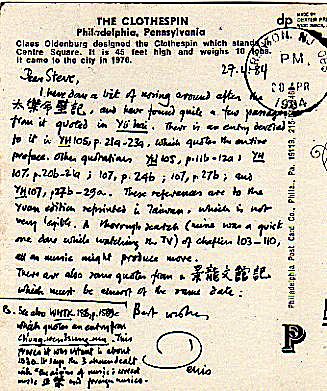 THE CLOTHESPIN
Philadelphia, Pennsylvania
Claes Oldenburg designed the Clothespin which stands in
Centre Square. It is 45 feet high and weighs 10 tons.
It came to the city in 1976.
29.4.84
Dear Steve,
I have done a bit of nosing around after the
太樂令壁記, and have found quite a few passages
from it quoted in Yü hai. There is an entry devoted
to it in YH 105, p. 21a-23a, which quotes the entire
preface. Other quotations YH 105, p. 11b-12a; YH
107, p. 20b-21a; 107, p. 24b; 107, p. 27b; and
YH 107, 27b-29a. These references are to the
Yuan edition reprinted in Taiwan, which is not
very legible. A thorough search (mine was a quick
one done while watching the TV) of chapters 103-110,
all on music might produce more.
There are also some quotes from a 景龍文館記
which must be almost of the same date.
Best wishes
Denis
B. See also WHTK 188, p. 1589c
which quotes an entry from
Chung-wen tsung-mu. This
proves it was extant in about
1030. It says the 3 chüan dealt
with "the origins of music; correct
music and foreign musics.
PM
20 APR
1984
Philadelphia Post Card Co. Phila., Pa. 19113
dp
P